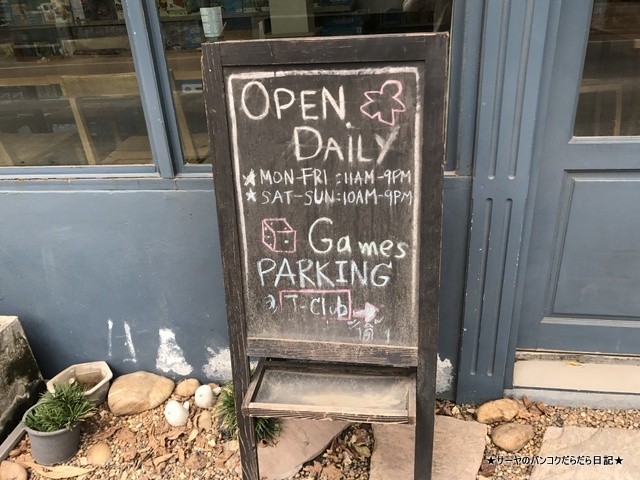 OPEN.
DAILY
★ MON-FRI : 11AM-9PM
★ SAT-SUN : 10AM-9PM
Games
PARKING
T-Club
★サーヤのバンコクだらだら日記★